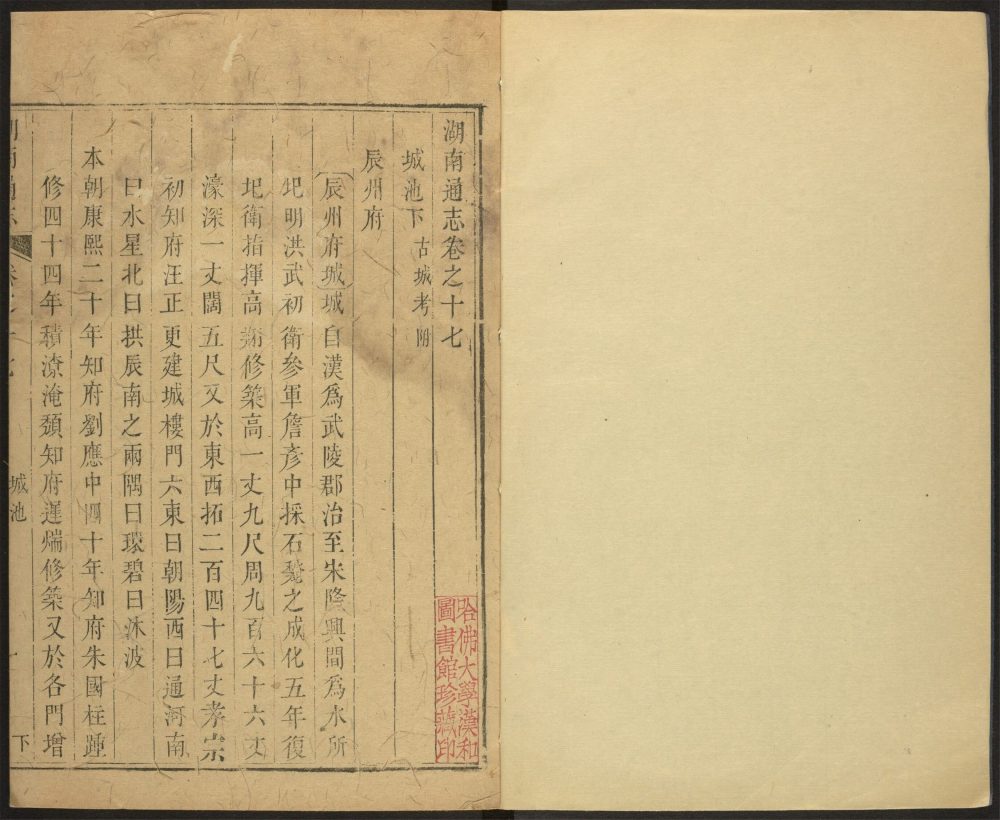 湖南通志卷之十七
城池下 古城考附
辰州府
辰州府城城自漢爲武陵郡治至宋隆興間爲水所
圯明洪武初衛參軍詹彥中採石甃之成化五年復
圯衛指揮高 修築高一丈九尺周九百六十六丈
濠深一丈闊五尺又於東西拓二百四十七丈孝宗
初知府汪正更建城樓門六東曰朝陽西曰通河南
曰水星北曰拱辰南之兩隅曰環碧曰沐波
本朝康熙二十年知府劉應中四十年知府朱國柱踵
修四十四年積潦淹頹知府遲煓修築又於各門增
城池
一
下
哈佛大學漢和
圖書館珍藏印